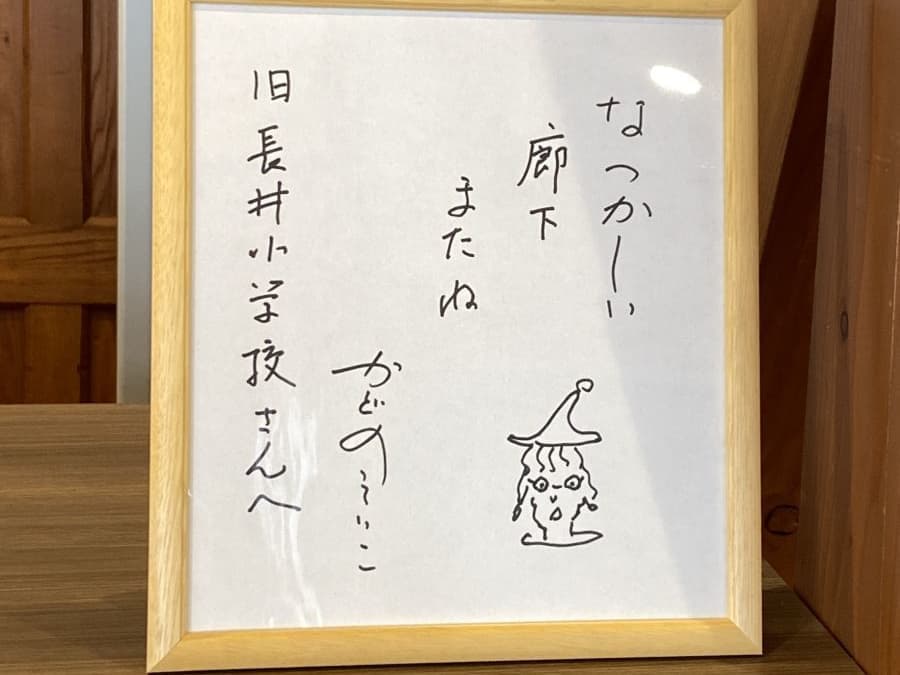 なつかしーい
廊下
またね
かどのえいこ
旧長井小学校さんへ